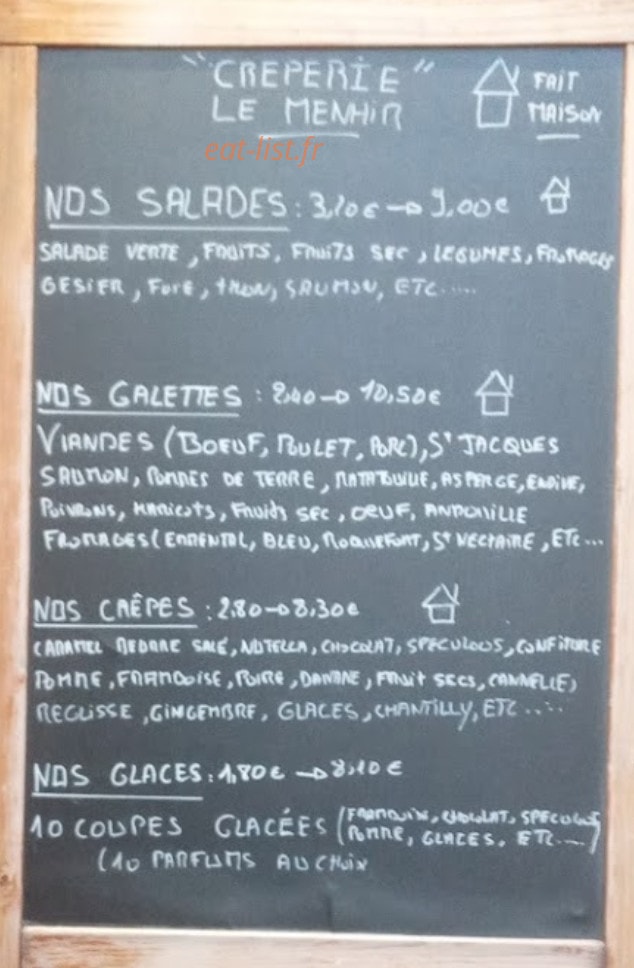 "CREPERIE"
LE MENHIR
FAIT
MAISON
eat-list.fr
NOS SALADES : 3,10€ → 9,00€
SALADE VERTE, FRUITS, FRUITS SEC, LEGUMES, FROMAGES
GESIER, FOIE, THON, SAUMON, ETC.....
NOS GALETTES : 2,40 → 10,50€
VIANDES (BOEUF, POULET, PORC), ST JACQUES
SAUMON, POMMES DE TERRE, RATATOUILLE, ASPERGE, ENDIVE,
POIVRONS, HARICOTS, FRUITS SEC, OEUF, ANDOUILLE
FROMAGES (EMMENTAL, BLEU, ROQUEFORT, ST NECTAIRE, ETC...
NOS CRÊPES : 2.80 → 8,30€
CARAMEL BEURRE SALÉ, NUTELLA, CHOCOLAT, SPECULOOS, CONFITURE
POMME, FRAMBOISE, POIRE, BANANE, FRUIT SECS, CANNELLE,
REGLISSE, GINGEMBRE, GLACES, CHANTILLY, ETC.....
NOS GLACES : 1,80€ → 8,10€
10 COUPES GLACÉES (
CHOCOLAT, SPECULOOS
POMME, GLACES, ETC....)
(10 PARFUMS AU CHOIX